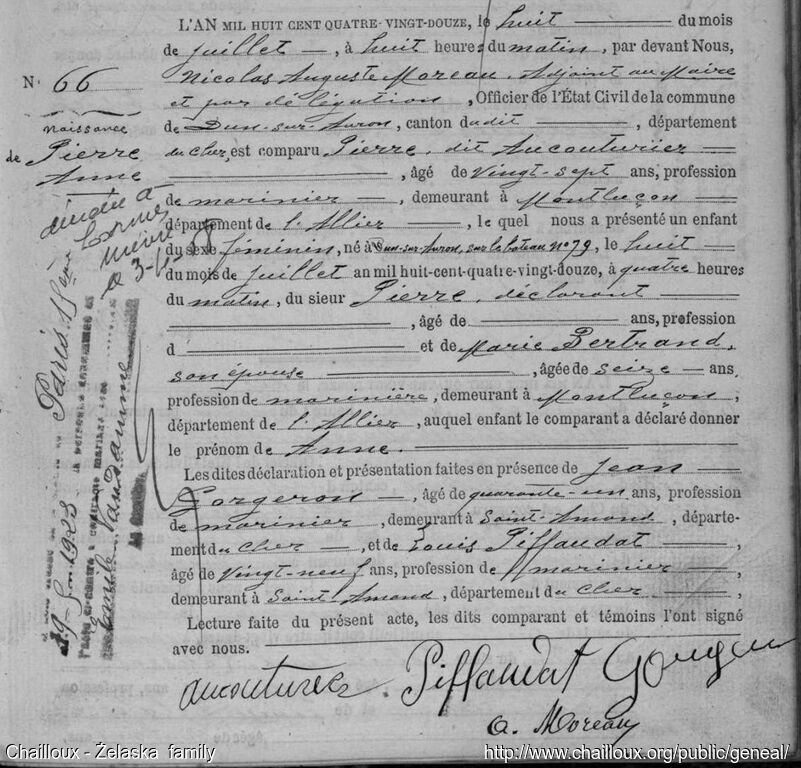 L'AN MIL HUIT CENT QUATRE-VINGT-DOUZE, le huit du mois
de juillet, à huit heures du matin, par devant Nous,
Nicolas Auguste Moreau, Adjoint au Maire
et par délégation, Officier de l'État Civil de la commune
de Dun-sur-Auron, canton dudit, département
du Cher, est comparu Pierre, dit Aucouturier
, âgé de Vingt-sept ans, profession
de marinier, demeurant à Montluçon
département de l'Allier, le quel nous a présenté un enfant
du sexe féminin, né à Dun-sur-Auron, sur le bateau n° 79, le huit
du mois de juillet an mil huit-cent-quatre-vingt-douze, à quatre heures
du matin, du sieur Pierre, déclarant
, âgé de ans, profession
d et de Marie Bertrand,
son épouse, âgée de seize ans,
profession de marinière, demeurant à Montluçon,
département de l'Allier, auquel enfant le comparant a déclaré donner
le prénom de Anne.
Les dites déclaration et présentation faites en présence de Jean
Gorgeron, âgé de quarante-un ans, profession
de marinier, demeurant à Saint-Amand, départe-
ment du Cher, et de Louis Piffaudat,
âgé de Vingt-neuf ans, profession de marinier,
demeurant à Saint-Amand, département du Cher.
Lecture faite du présent acte, les dits comparant et témoins l'ont signé
avec nous.
aucouturier. Piffaudat
A. Moreau
N° 66
naissance
de Pierre
Anne
décédée à
Nièvre
Paris 15ème
Emile Vandamme
Chailloux - Żelaska family
http://www.chailloux.org/public/geneal/